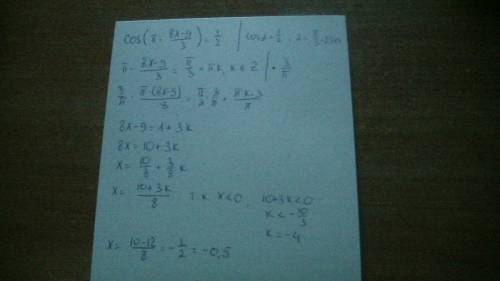 cos(π · (8x-9)/3) = 1/2 | cos α = 1/2
π · (8x-9)/3 = π/3 + πk, k ∈ Z | · 3/π
3/π · π·(8x-9)/3 = π/3 · 3/π + πk·3/π
8x-9 = 1 + 3k
8x = 10 + 3k
x = 10/8 + 3/8 k
x = (10+3k)/8 т.к. x<0, 10+3k<0
k < -10/3
k = -4
x = (10-12)/8 = -1/2 = -0,5